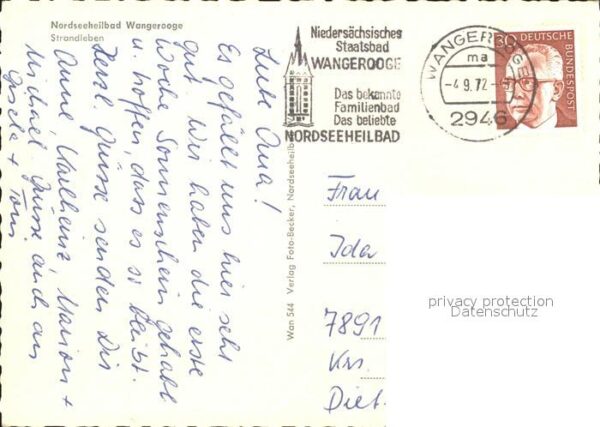 Nordseeheilbad Wangerooge
Strandleben
Liebe Oma!
Es gefällt uns hier sehr
gut. Wir haben die erste
Woche Sonnenschein gehabt
u. hoffen, dass es so bleibt.
Herzl. Grüsse senden Dir
Anne, Karlheinz, Marion +
Michael. Grüsse auch an
Gisela + Toni.
Wan 544 Verlag Foto-Becker, Nordseeheilb
Niedersächsisches
Staatsbad
WANGEROOGE
Das bekannte
Familienbad
Das beliebte
NORDSEEHEILBAD
WANGEROOGE
ma
-4.9.72.-
2946
30
DEUTSCHE
BUNDESPOST
Frau
Ida
7891
Krs.
Diet
privacy protection
Datenschutz